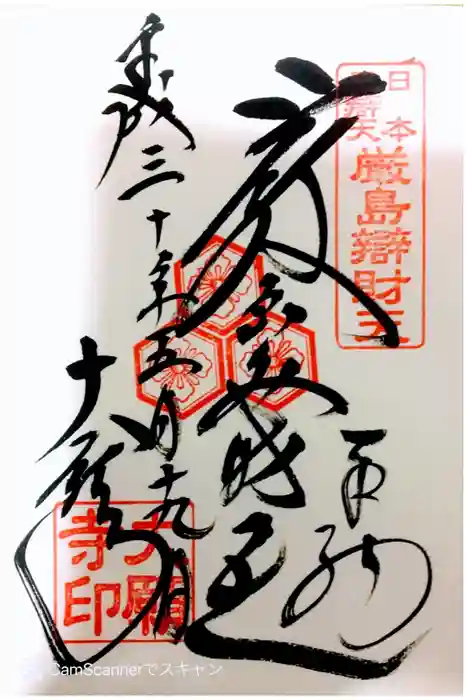 奉拝
日本
三弁天
厳島辯財天
厳島弁財天
平成三十年五月十九日
大願寺
大願
寺印
CamScannerでスキャン